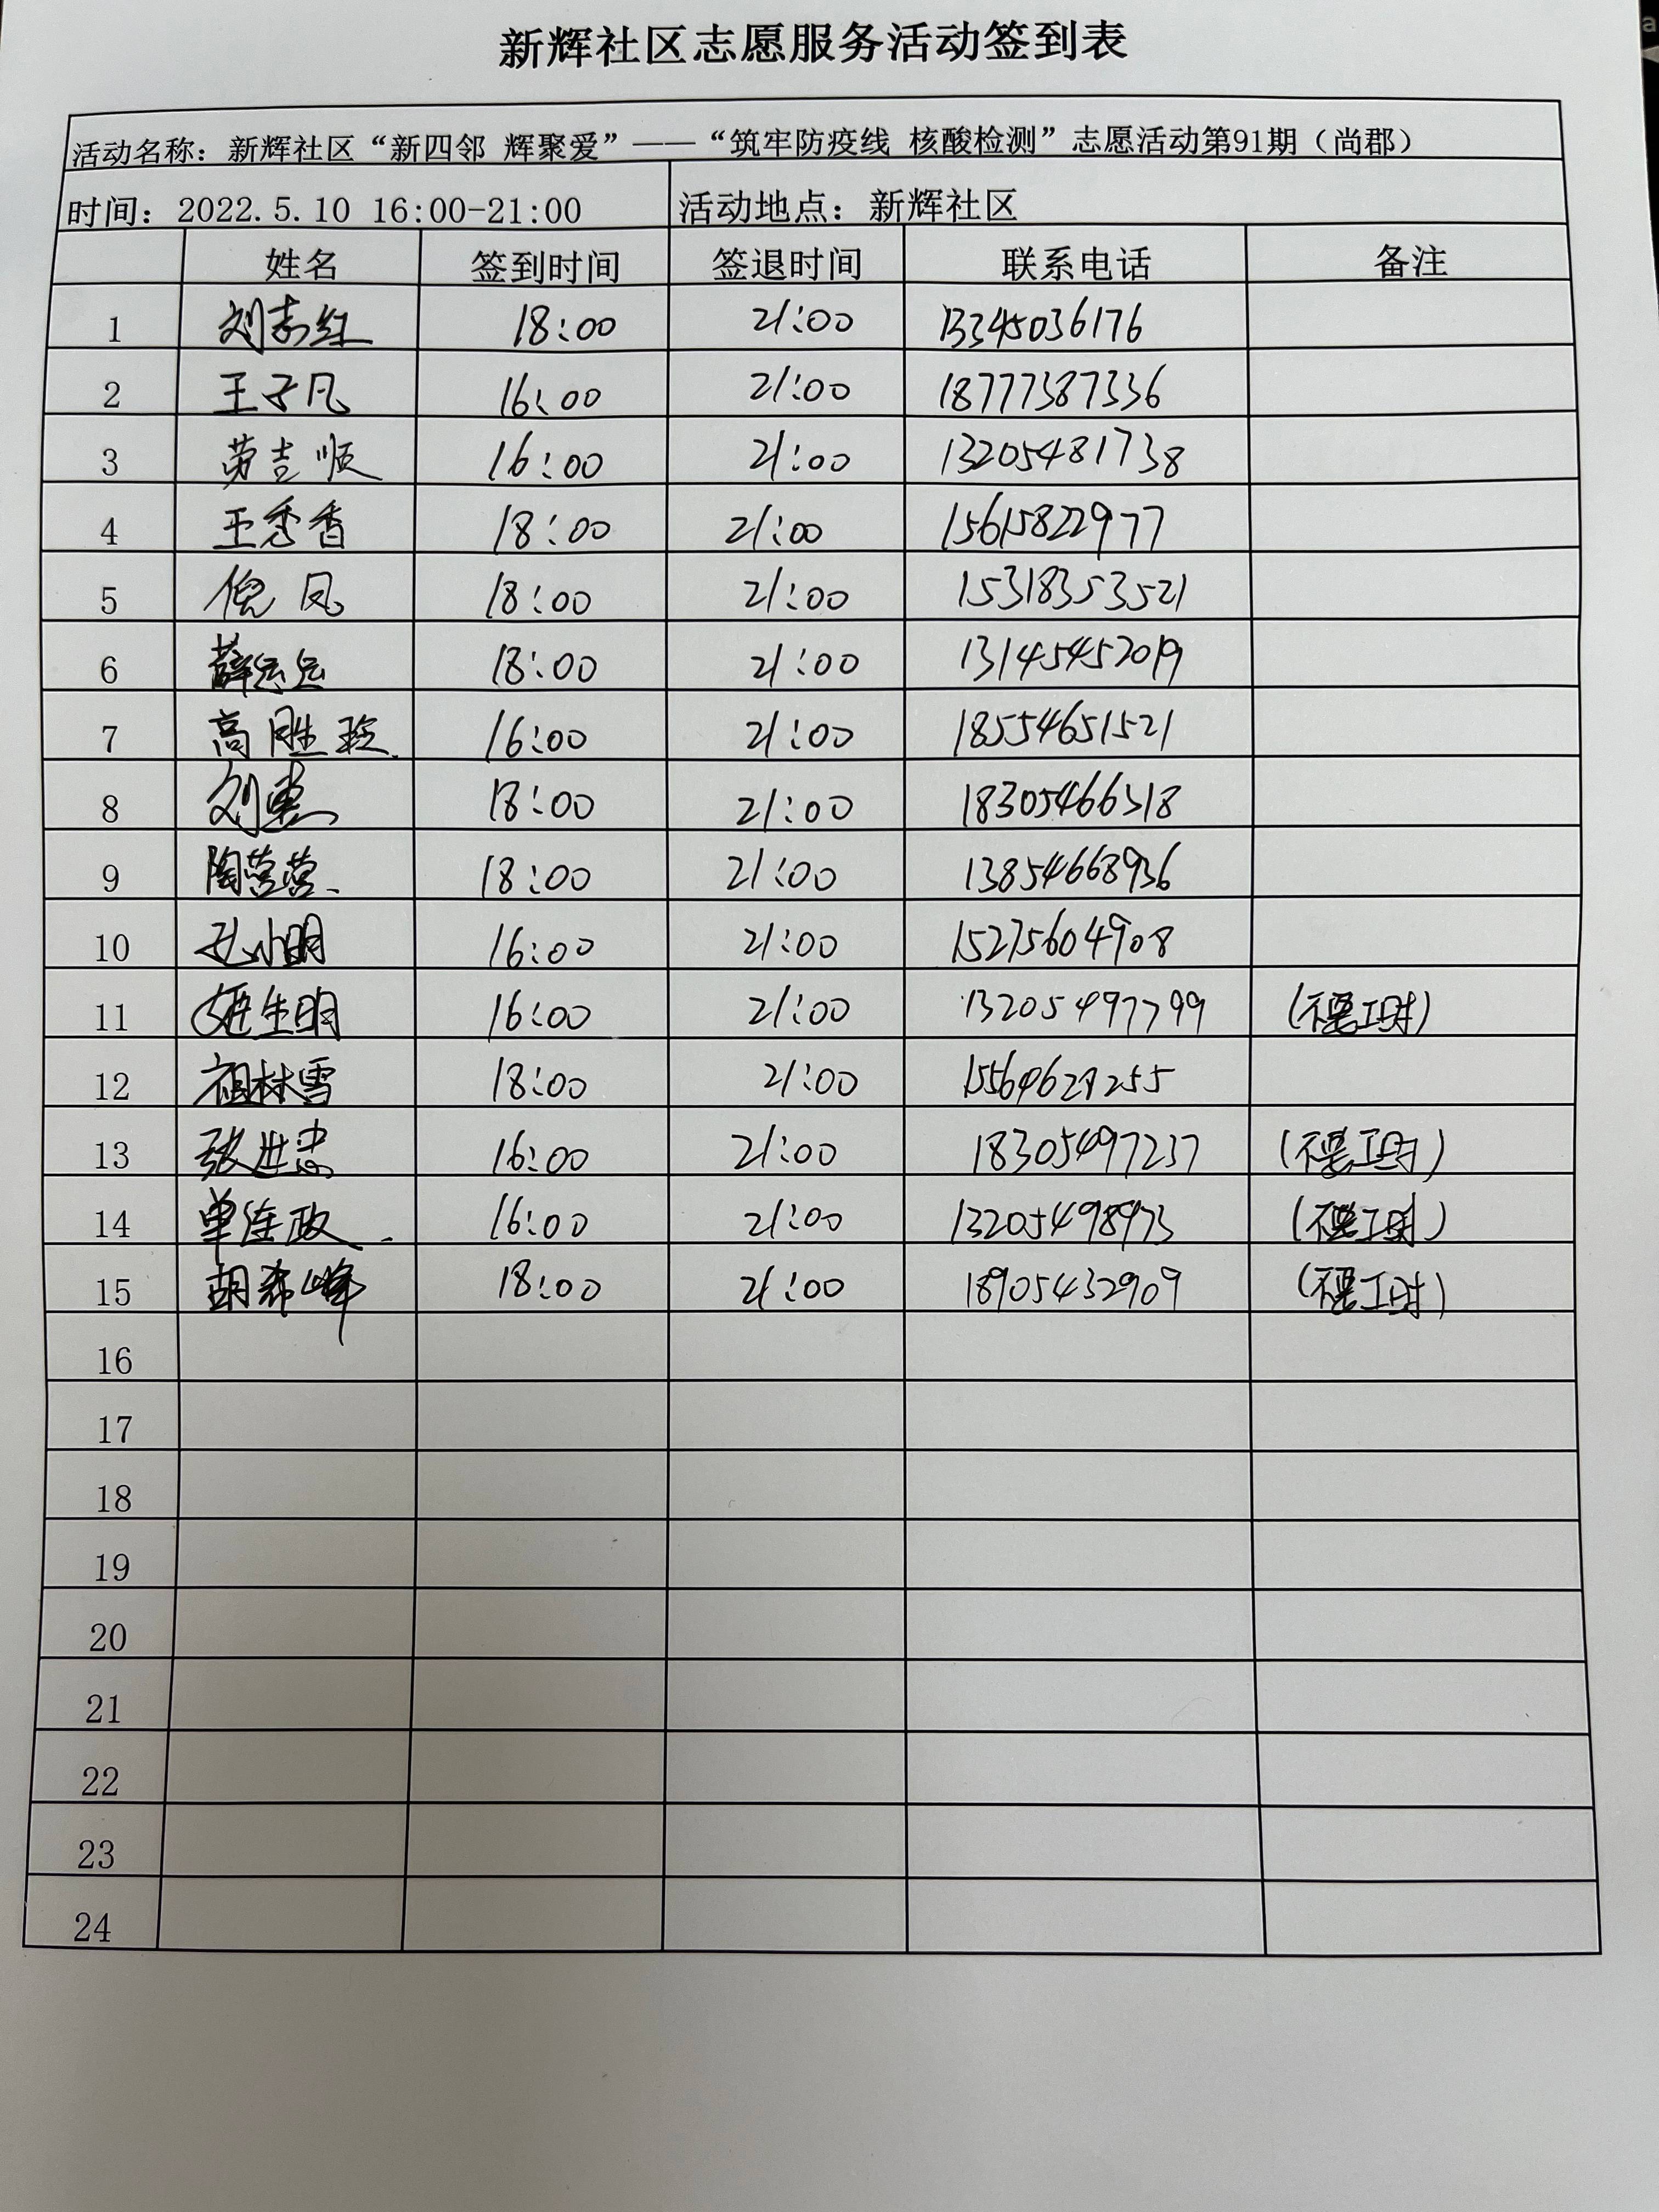 新辉社区志愿服务活动签到表
活动名称：新辉社区“新四邻 辉聚爱”——“筑牢防疫线 核酸检测”志愿活动第91期（尚郡）
时间：2022.5.10 16:00-21:00 活动地点：新辉社区
姓名 签到时间 签退时间 联系电话 备注
1 刘志红 18:00 21:00 13345036176
2 王子凡 16:00 21:00 18777387336
3 劳吉顺 16:00 21:00 13205481738
4 王秀香 18:00 21:00 15615822977
5 倪凤 18:00 21:00 15318353521
6 薛 18:00 21:00 13145452019
7 高胜玲 16:00 21:00 18554651521
8 刘惠 18:00 21:00 18305466318
9 陶营营 18:00 21:00 13854668936
10 孔小明 16:00 21:00 15275604908
11 生明 16:00 21:00 13205497799 (不要工时)
12 祖林雪 18:00 21:00
13 张世忠 16:00 21:00 18305497237 (不要工时)
14 单连政 16:00 21:00 13205498973 (不要工时)
15 胡希峰 18:00 21:00 18905432909 (不要工时)
16
17
18
19
20
21
22
23
24